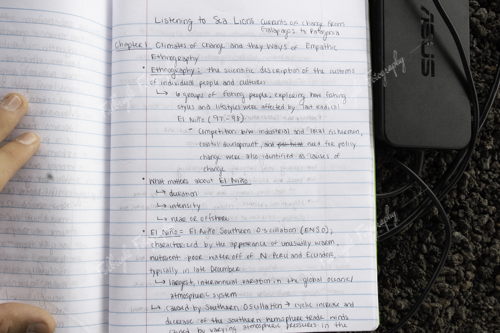 Listening to Sea Lions: Currents of Change from
Galapagos to Patagonia
Chapter 1: Climates of Change and the Ways of Empathic
Ethnography
• Ethnography: the scientific description of the customs
of individual people and cultures
↳ 6 groups of fishing people, exploring how fishing
styles and lifestyles were affected by last radical
El Niño (97-98)
* Competition b/w industrial and local fishermen,
coastal development, and need for policy
change were also identified as causes of
change
• What matters about El Niño:
↳ duration
↳ intensity
↳ near or offshore
• El Niño = El Niño Southern Oscillation (ENSO),
characterized by the appearance of unusually warm,
nutrient-poor water off of N. Peru and Ecuador,
typically in late December
↳ largest interannual variation in the global oceanic/
atmospheric system
↳ caused by Southern Oscillation → cyclic increase and
decrease of the southern hemisphere trade winds
caused by varying atmospheric pressures in the
ASUS
Photography